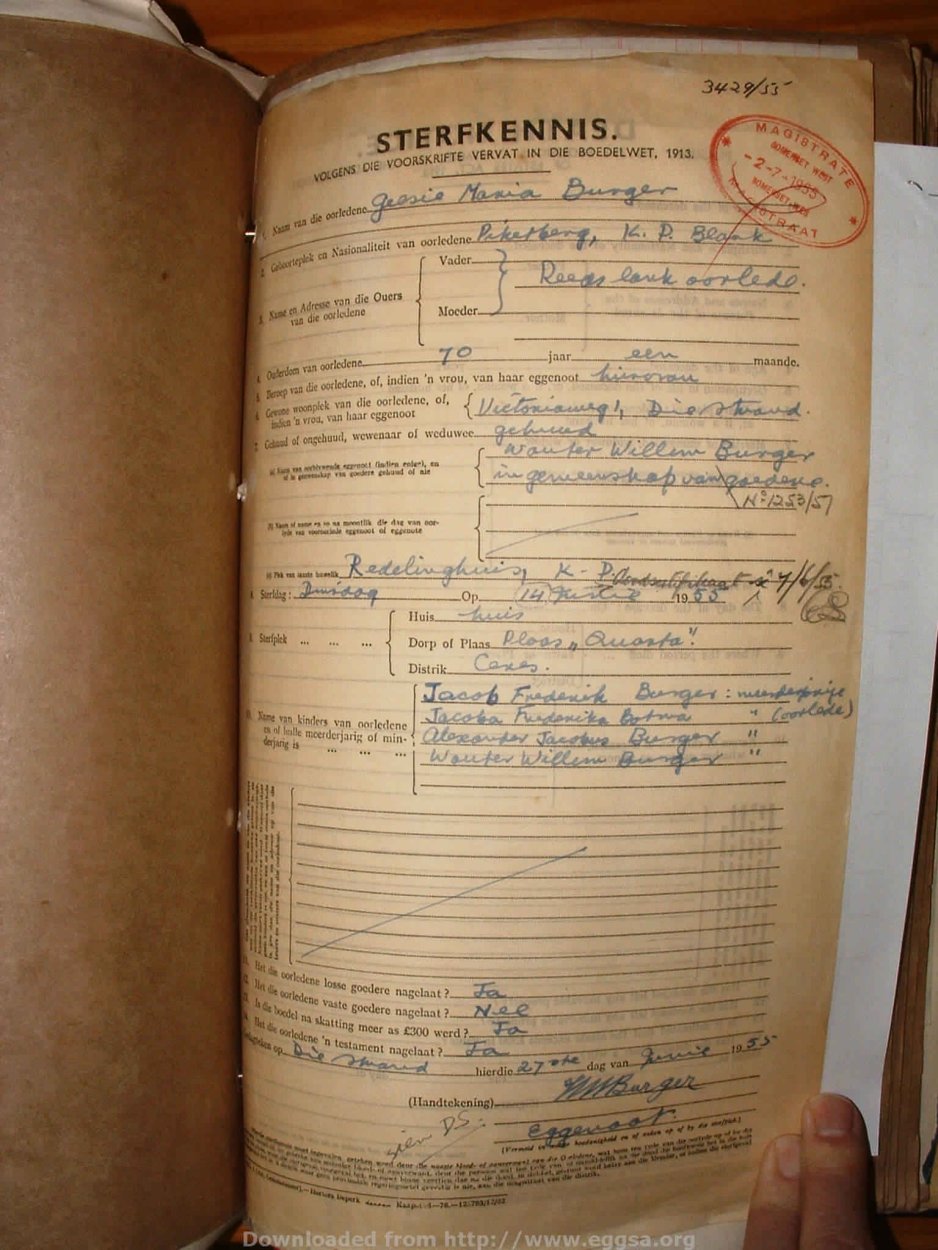 3429/55
STERFKENNIS.
VOLGENS DIE VOORSKRIFTE VERVAT IN DIE BOEDELWET, 1913.
MAGISTRATE
SOMERSET WEST
-2-7-1955
SOMERSET-WES
MAGISTRAAT
1. Naam van die oorledene Geesie Maria Burger
2. Geboorteplek en Nasionaliteit van oorledene Piketberg, K. P. Blank
3. Name en Adresse van die Ouers van die oorledene
Vader
Reeds lank oorlede.
Moeder
4. Ouderdom van oorledene 70 jaar een maande.
5. Beroep van die oorledene, of, indien 'n vrou, van haar eggenoot huisvrou
6. Gewone woonplek van die oorledene, of, indien 'n vrou, van haar eggenoot Victoriaweg 1, Die Strand.
7. Gehuud of ongehuud, wewenaar of weduwee gehuud
(a) Naam van oorblywende eggenoot (indien enige), en of in gemeenskap van goedere gehuud of nie
Wouter Willem Burger
in gemeenskap van goedere.
No 1253/51
(b) Naam of name en so na moontlik die dag van oorlyde van voormalige eggenoot of eggenote
(c) Plek van laaste huwelik Redelinghuis, K. P.
7/6/55
8. Sterfdag: Dinsdag Op 14 Junie 1955
9. Sterfplek ... ... ...
Huis huis
Dorp of Plaas Plaas „Quarta".
Distrik Ceres.
10. Name van kinders van oorledene en of hulle meerderjarig of minderjarig is ... ... ...
Jacob Frederik Burger : meerderjarige
Jacoba Frederika Botma " (oorlede)
Alexander Jacobus Burger "
Wouter Willem Burger "
11. Het die oorledene losse goedere nagelaat? Ja
12. Het die oorledene vaste goedere nagelaat? Nee
13. Is die boedel na skatting meer as £300 werd? Ja
14. Het die oorledene 'n testament nagelaat? Ja
Gedagteken op Die Strand hierdie 27ste dag van Junie 1955
(Handtekening) WWBurger
Eggenoot.
Downloaded from http://www.eggsa.org